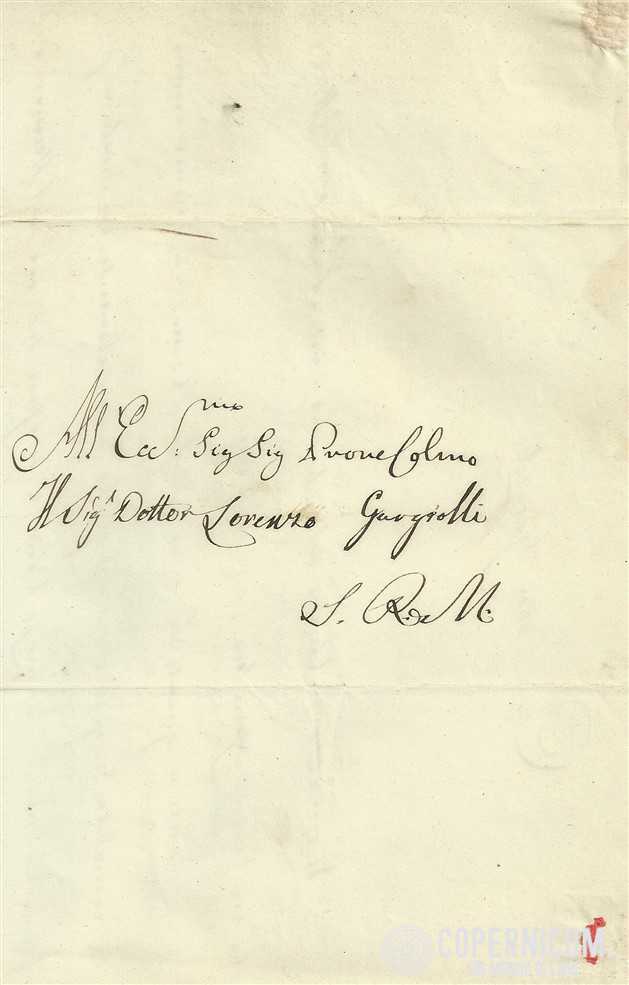 All' Ecc.mo Sig Sig Prone Colmo
Il Sigr Dottor Lorenzo
S. R. M.
COPERNICUM